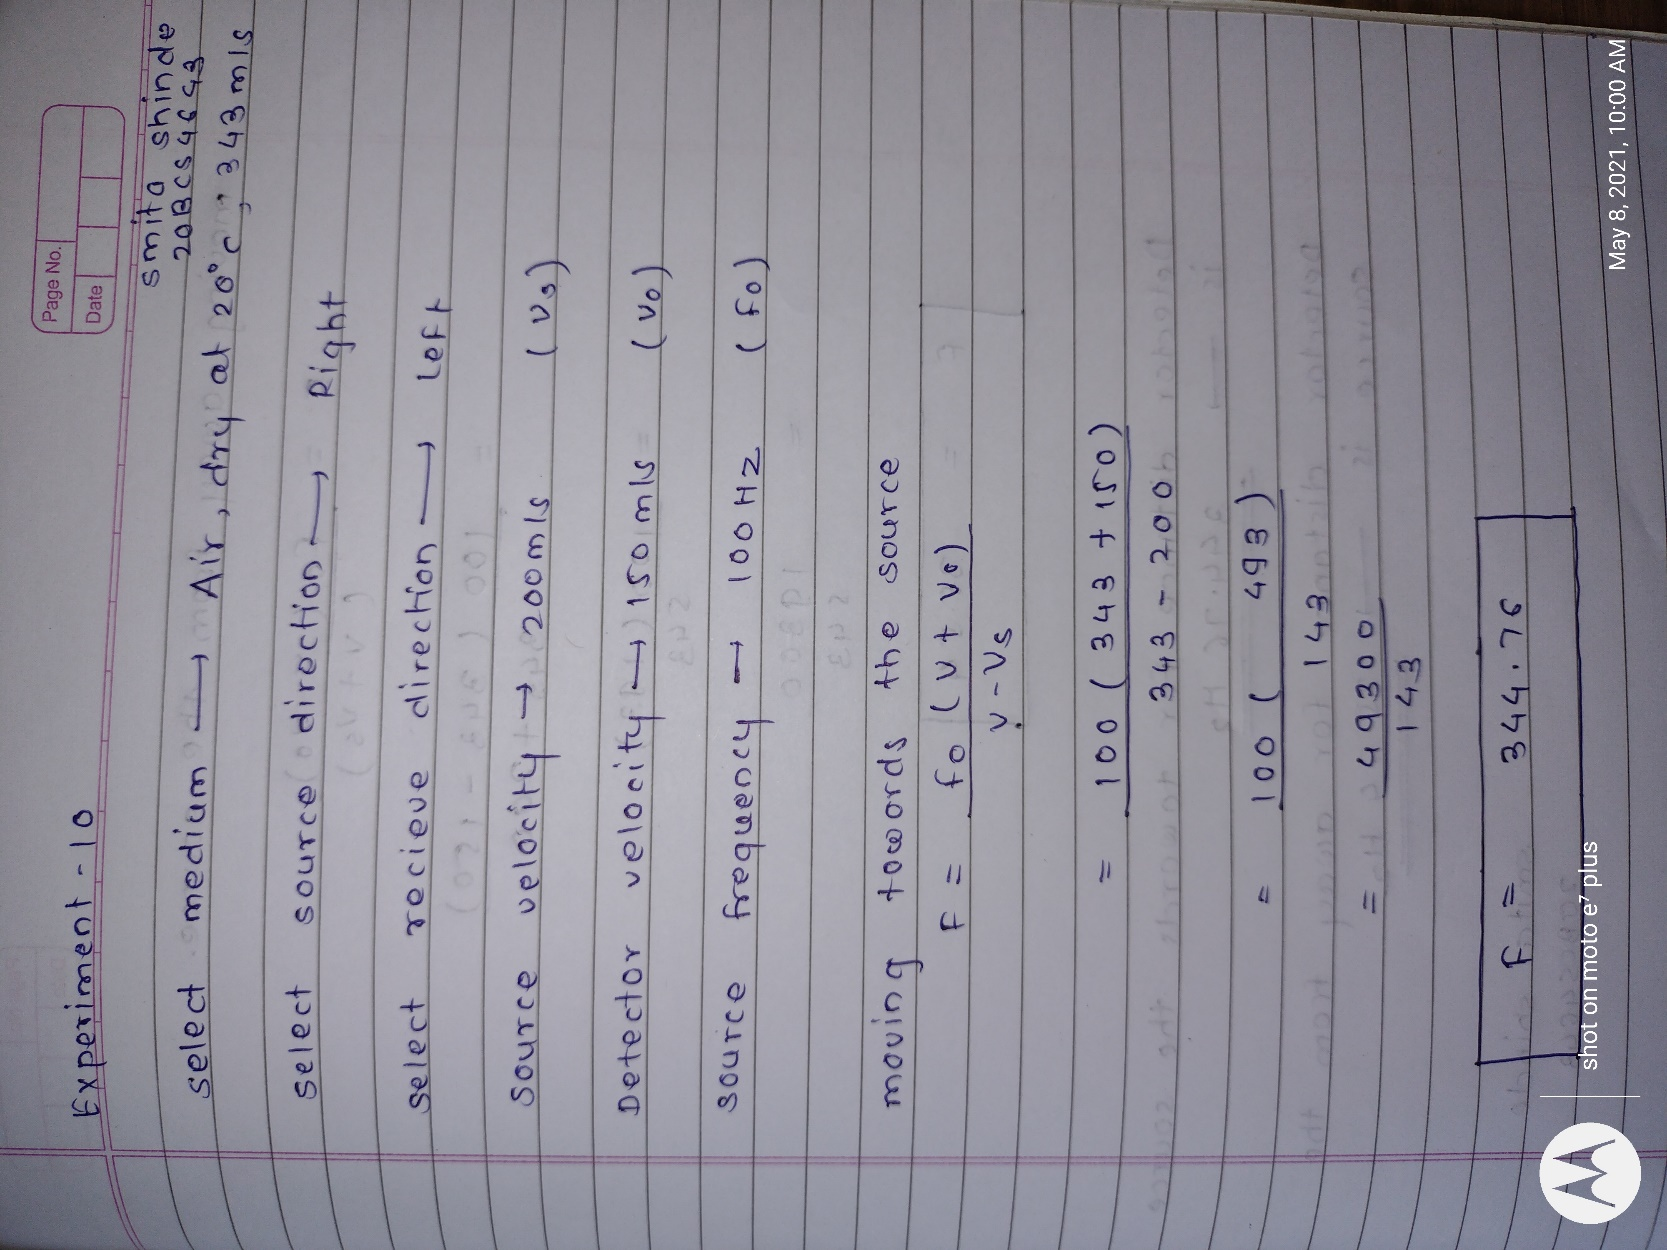 Page No.
Date
Experiment - 10
smita shinde
20BCS4643
select medium → Air, dry at 20°c, 343 m/s
select source direction → Right
select recieve direction → Left
source velocity → 200m/s (vs)
Detector velocity → 150 m/s (vo)
source frequency → 100 Hz (fo)
moving towords the source
F = fo (v + vo)
v - vs
= 100 ( 343 + 150)
343 - 200
= 100 ( 493 )
143
= 49300
143
F = 344.76
shot on moto e⁷ plus
May 8, 2021, 10:00 AM